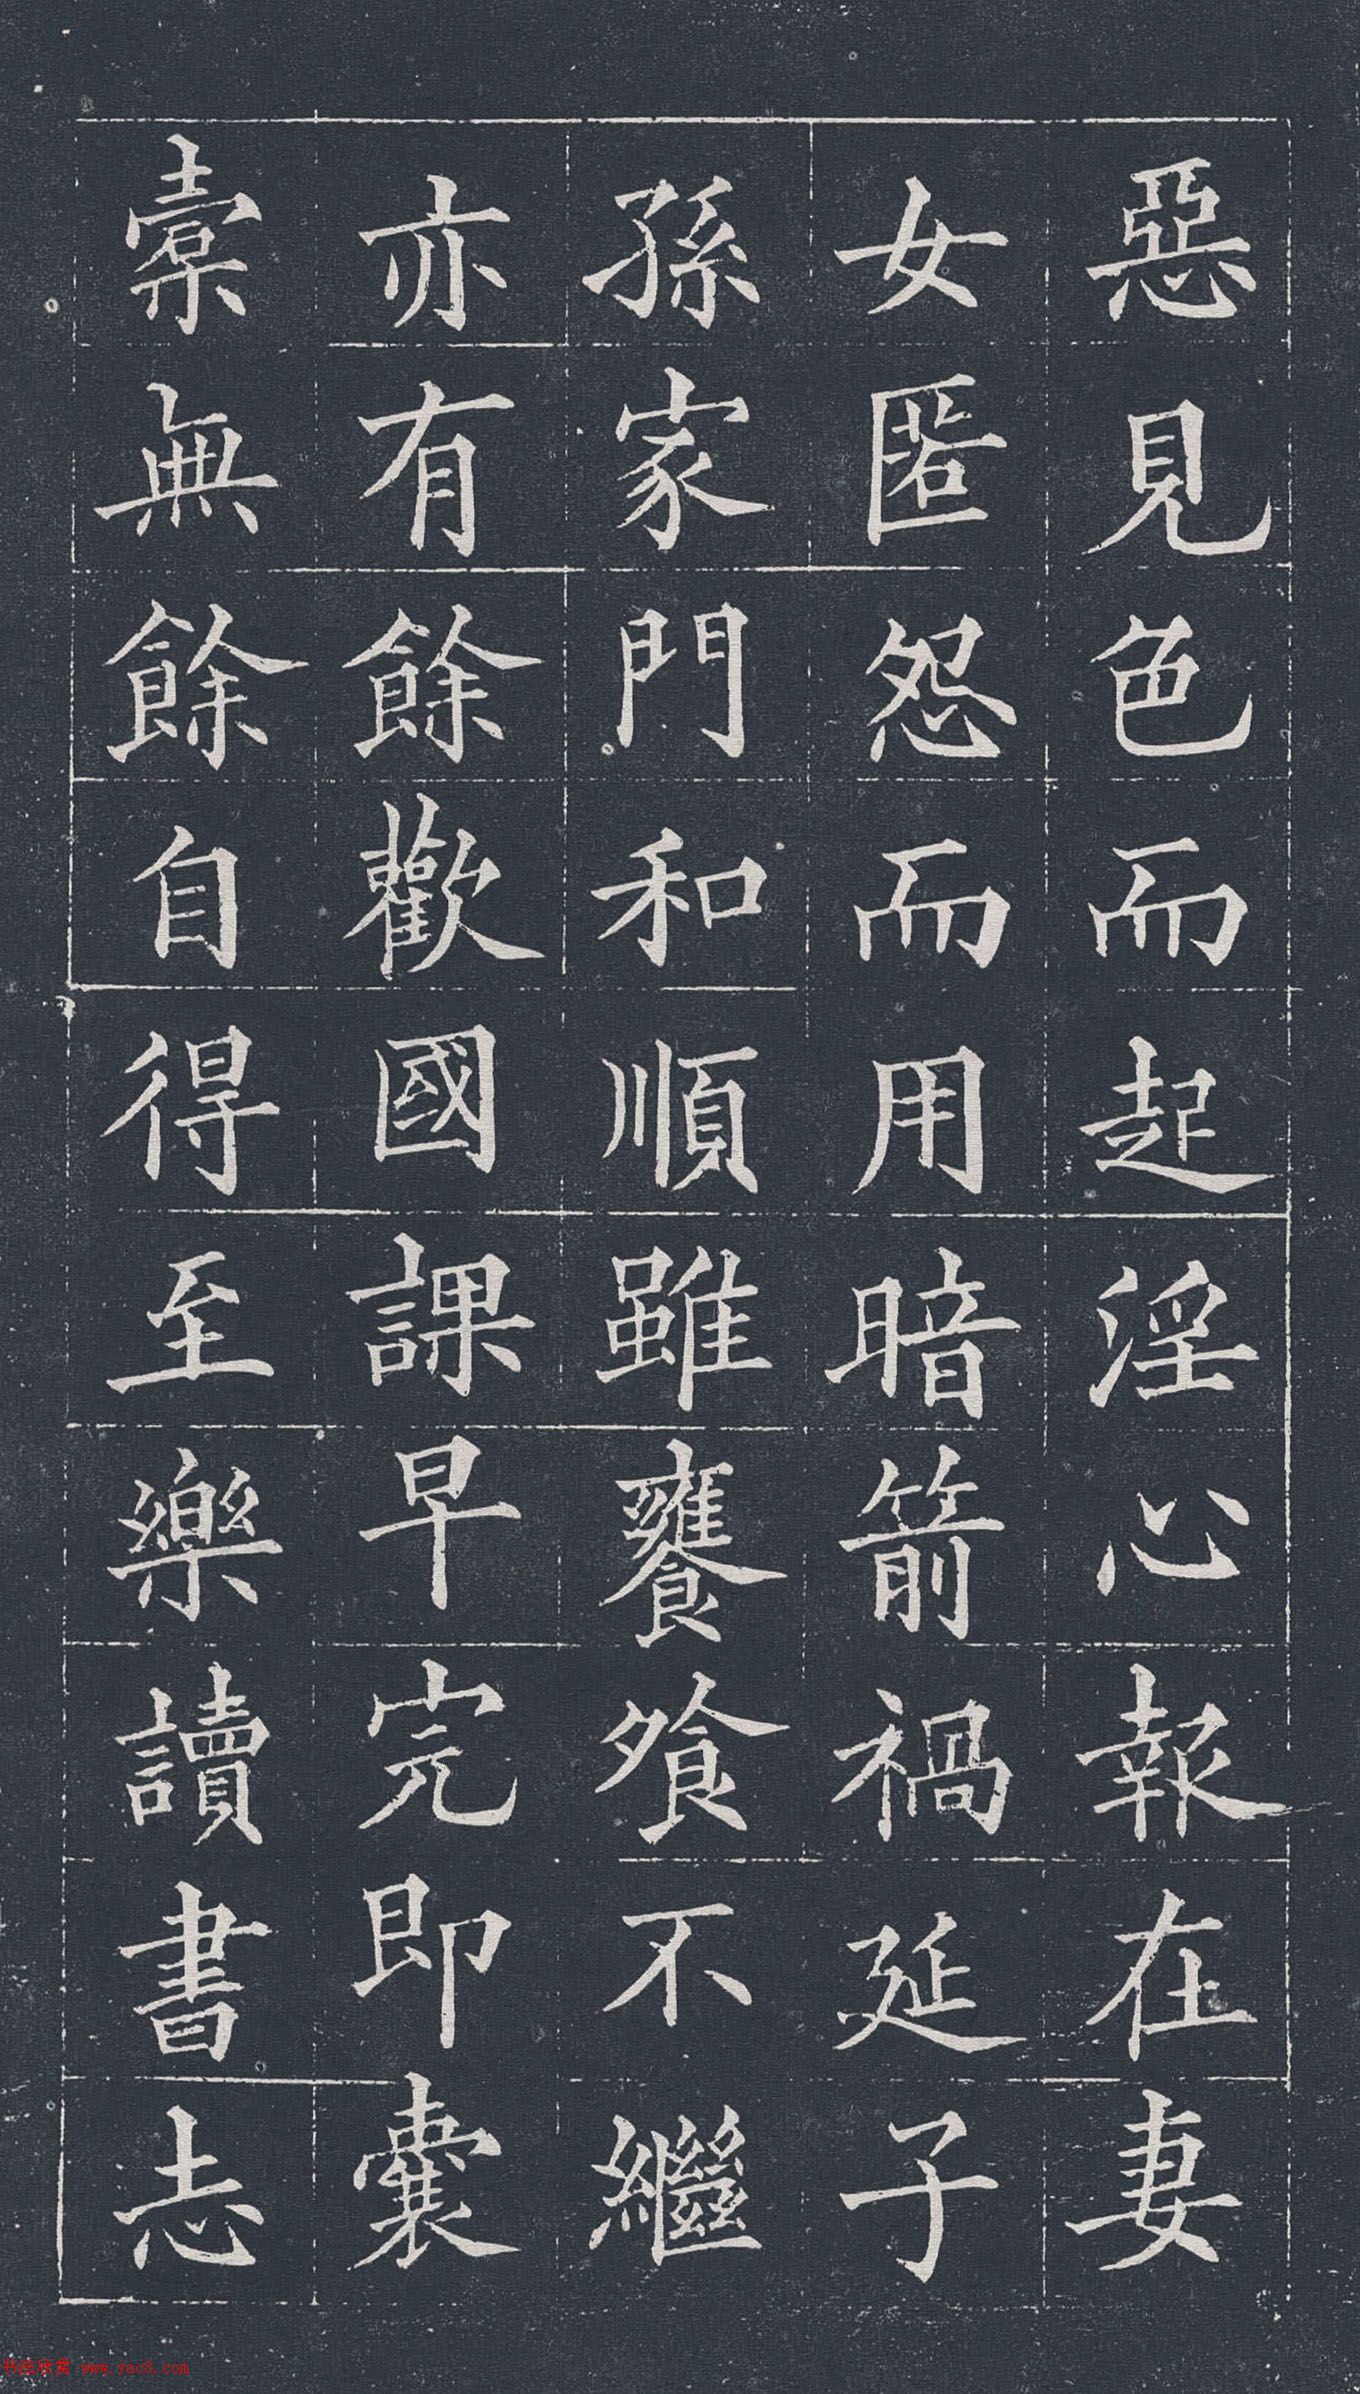 惡見色而起淫心報在妻
女匿怨而用暗箭禍延子
孫家門和順雖饔飧不繼
亦有餘歡國課早完即囊
橐無餘自得至樂讀書志
书法欣赏 www.yac8.com